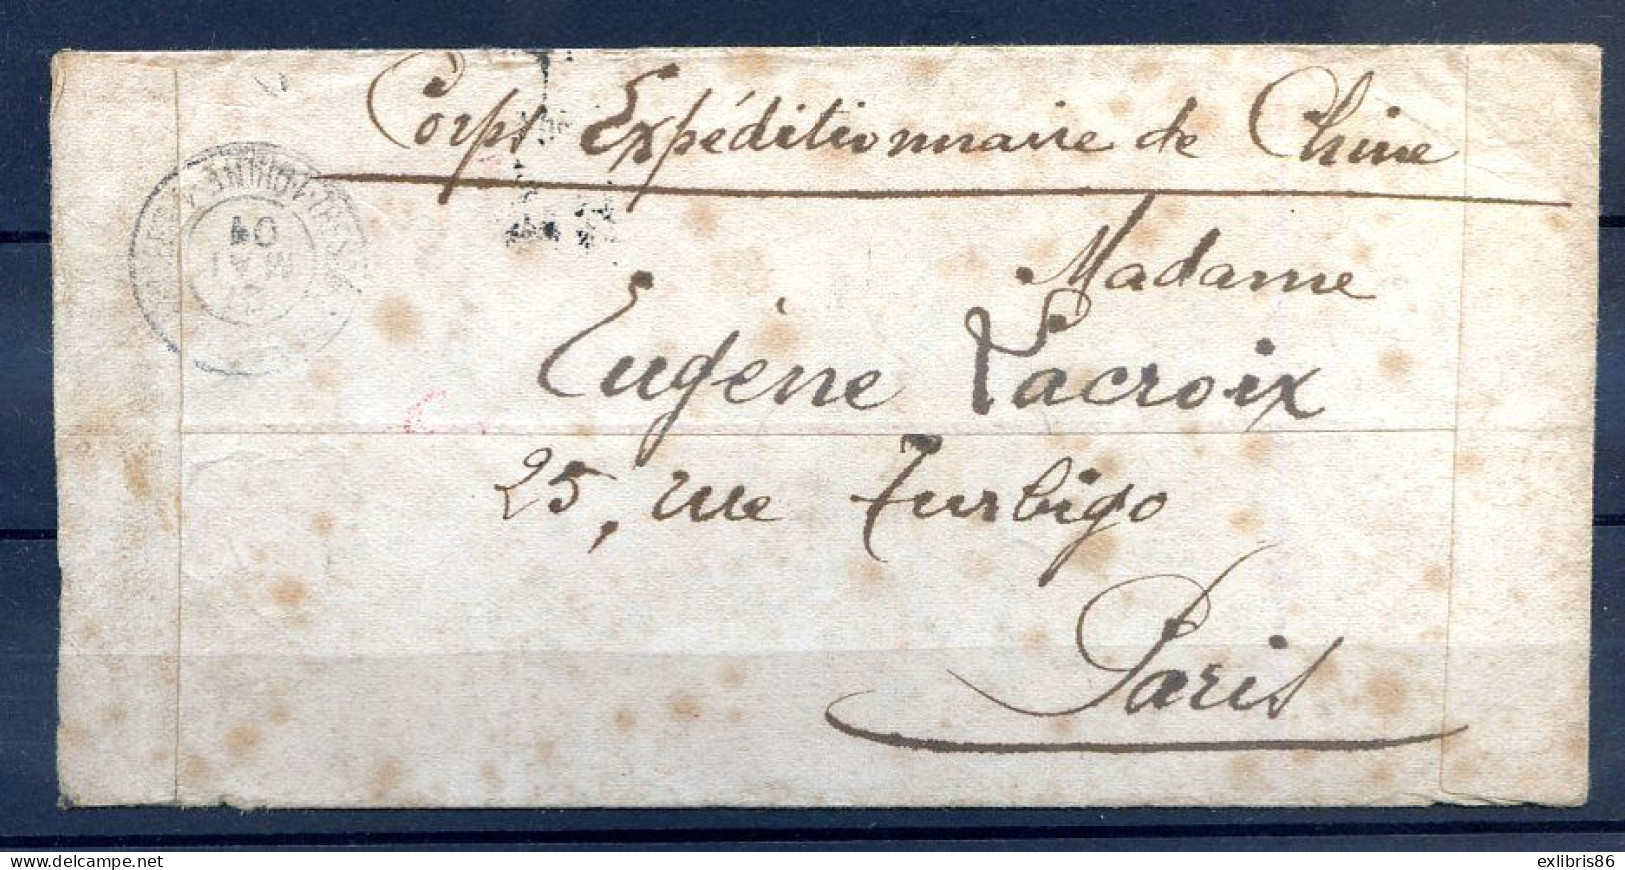 Corps Expéditionnaire de Chine
Madame
Eugène Lacroix
25, rue Turbigo
Paris
MAI
04
delcampe.net
exlibris86